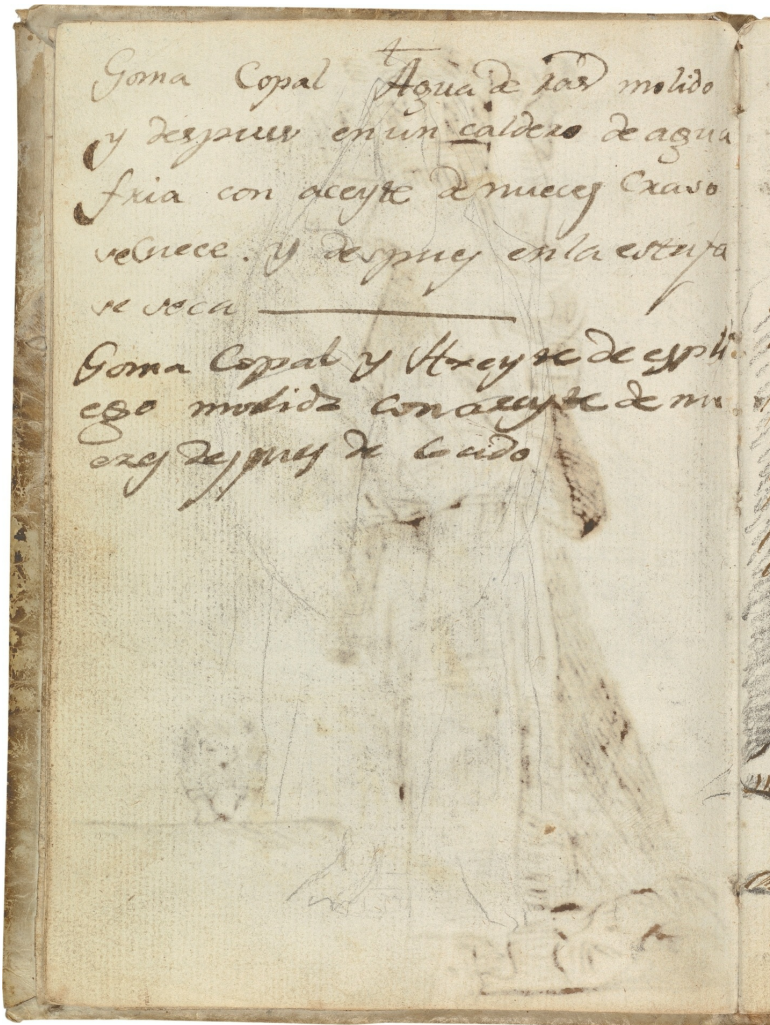 Goma Copal Agua de ras molido
y despues en un caldero de agua
fria con aceyte de nueces Craso
se Cuece. y despues en la estufa
se seca
Goma Copal y Axeyte de espli
ego molida con aceyte de nu
ezes despues de Cocido